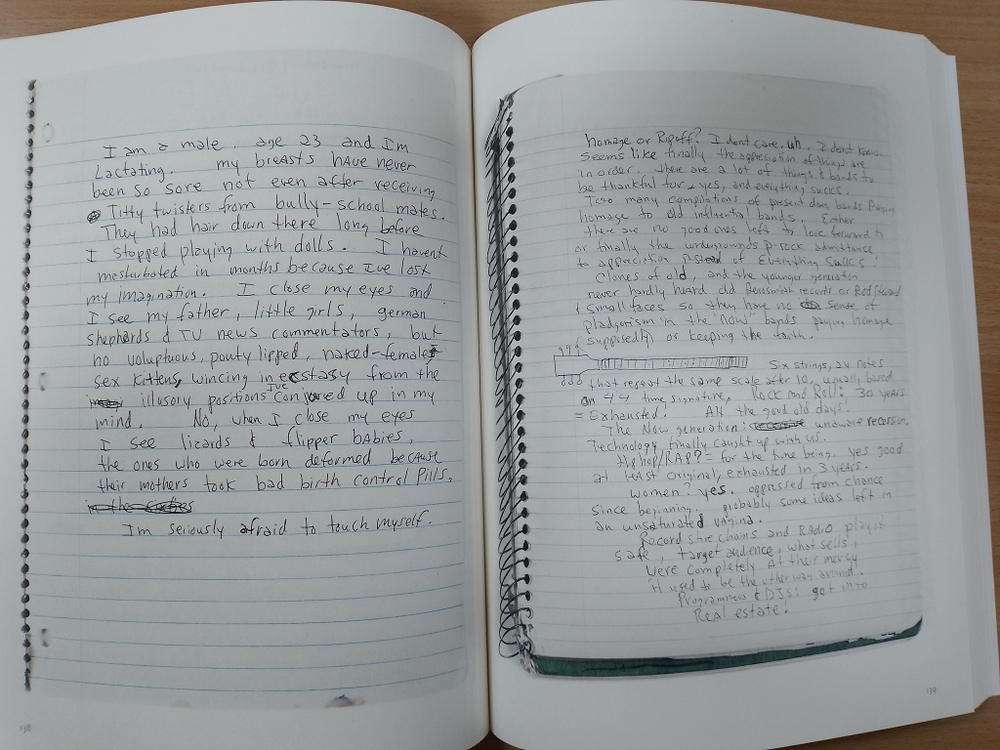 I am a male, age 23 and I'm
Lactating. my breasts have never
been so sore not even after receiving
Titty twisters from bully-school mates.
They had hair down there long before
I stopped playing with dolls. I havent
masturbated in months because Ive lost
my imagination. I close my eyes and
I see my father, little girls, german
shepherds & TV news commentators, but
no voluptuous, pouty lipped, naked-female
sex kittens, wincing in ecstasy from the
illusory positions Ive conjured up in my
mind. No, when I close my eyes
I see lizards & flipper babies,
the ones who were born deformed because
their mothers took bad birth control pills.
Im seriously afraid to touch myself.
138
homage or Ripoff? I dont care. uh, I dont know.
Seems like finally the appreciation of things are
in order. there are a lot of things & bands to
be thankful for, yes, and everything sucks.
Too many compilations of present day bands Paying
homage to old influential bands. Either
there are no good ones left to look forward to
or finally the undergrounds p-rock admittance
to appreciation instead of Everything Sucks!
Clones of old, and the younger generation
never hardly heard old Aerosmith records or Rod Stewart
& Small faces so they have no sense of
pladgorism in the "NOW" bands paying homage
(supposedly) or keeping the faith.
Six strings, 24 notes
that repeat the same scale after 10, usually based
on 4/4 time signature, Rock and Roll: 30 years
= Exhausted! Ah the good old days!
The Now generation: unaware recession,
Technology finally caught up with us.
Hip hop/RAP? = for the time being. yes good
at least original, exhausted in 3 years.
women? yes. oppressed from chance
since beginning. probably some ideas left in
an unsaturated vagina.
Record store chains and RADIO play it
safe, target audience, what sells,
Were completely At their mercy
it used to be the other way around.
Programmers & DJs: get into
REAl estate!
139